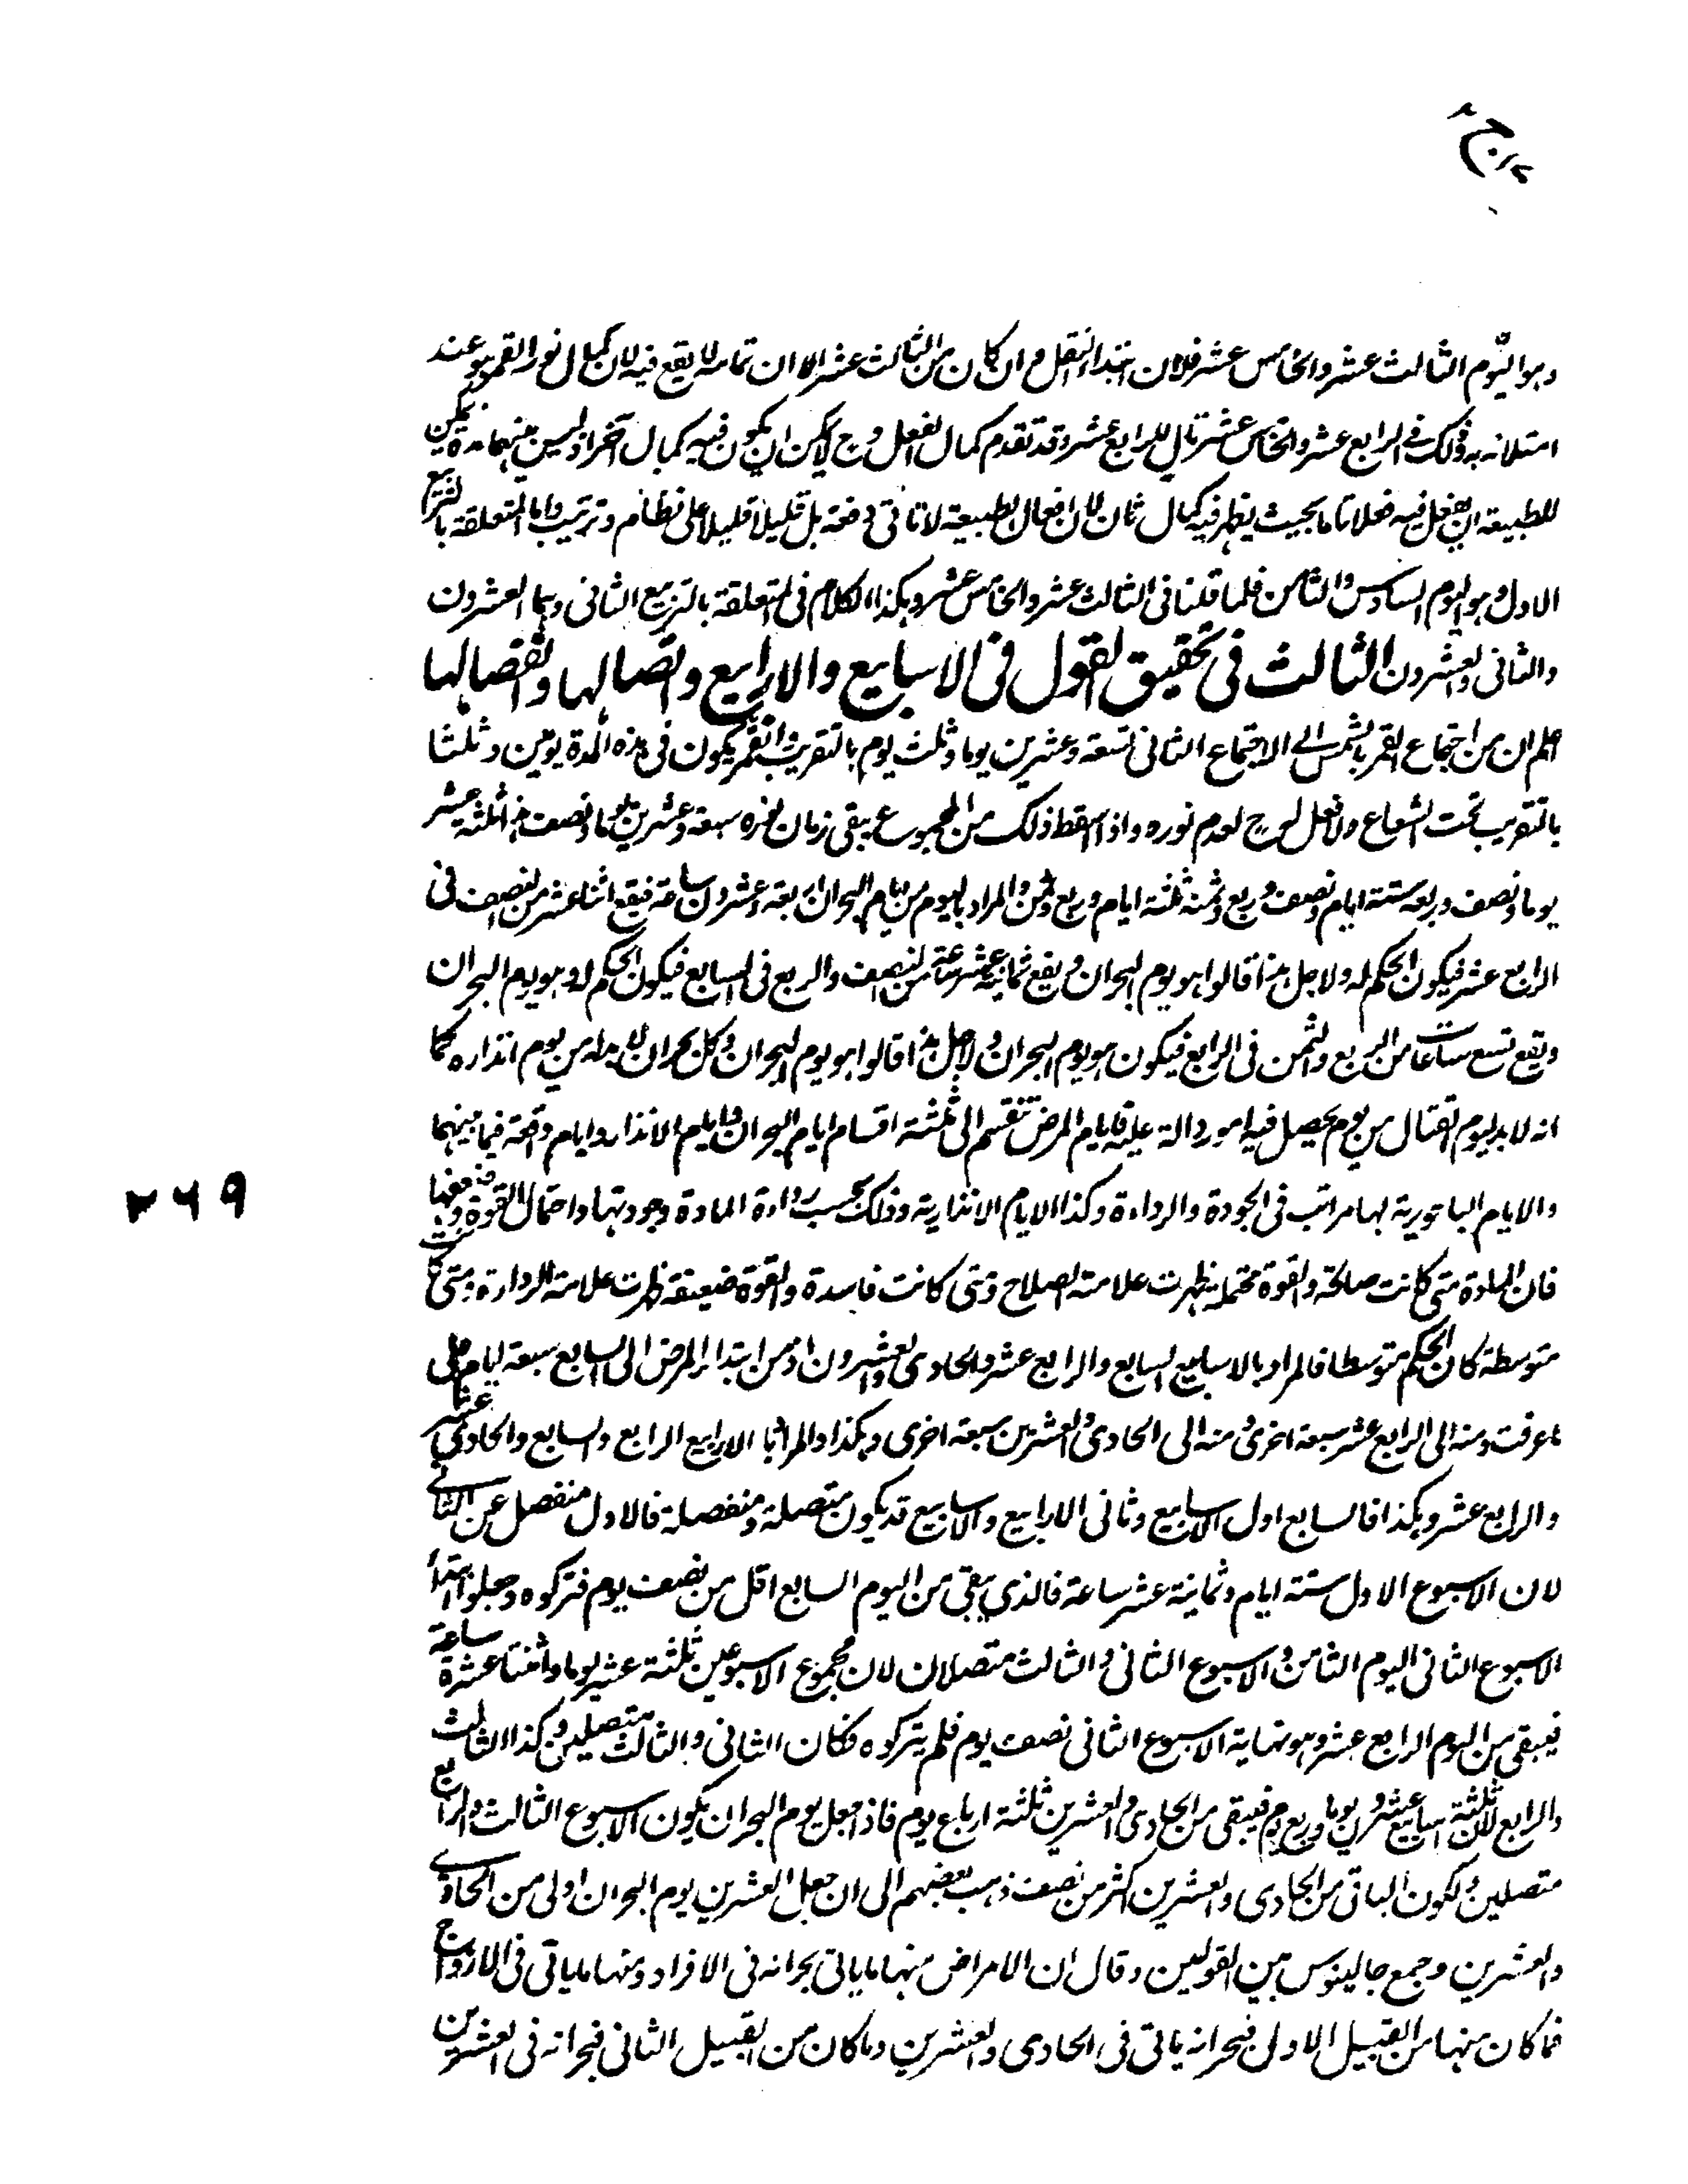 وهو اليوم الثالث عشر والخامس عشر فلان ابتداء الفعل وان كان من الثالث عشر الا ان تمامه لا يقع فيه لان كمال نور القمر هو عند
امتلائه به وذلك فى الرابع عشر والخامس عشر تال للرابع عشر وقد تقدم كمال الفعل وح لا يمكن ان يكون فيه كمال آخر اذ ليس بينهما مدة يمكن
للطبيعة ان تفعل فيه فعلا تاما بحيث يظهر فيه كمال ثان لان افعال الطبيعة لا تاتى دفعة بل قليلا قليلا على نظام وترتيب واما المتعلقة بالتربيع
الاول وهو اليوم السادس والثامن فلما قلنا فى الثالث عشر والخامس عشر وهكذا الكلام فى المتعلقة بالتربيع الثانى وهما العشرون
والثانى والعشرون الثالث فى تحقيق القول فى الاسابيع والارابيع واتصالها وانفصالها
اعلم ان من اجتماع القمر بالشمس الى الاجتماع الثانى تسعة وعشرين يوما وثلث يوم بالتقريب والقمر يكون فى هذه المدة يومين وثلثا
بالتقريب تحت الشعاع ولا فعل له ح لعدم نوره واذا اسقط ذلك من المجموع يبقى زمان نوره سبعة وعشرين يوما ونصفه ثلثة عشر
يوما ونصف وربعه ستة ايام ونصف وربع وثمنه ثلثة ايام وربع وثمن والمراد باليوم من ايام البحران اربعة وعشرون ساعة فيقع اثنا عشر من النصف فى
الرابع عشر فيكون الحكم له ولاجل هذا قالوا هو يوم البحران ويقع ثمانية عشر ساعة من النصف والربع فى السابع فيكون الحكم له وهو يوم البحران
ويقع تسع ساعات من الربع والثمن فى الرابع فيكون هو يوم البحران ولاجل هذا قالوا هو يوم البحران وكل بحران لا بد له من يوم انذاره كما
انه لا بد ليوم القتال من يوم يحصل فيه امور دالة عليه فايام المرض تنقسم الى ثلثة اقسام ايام البحران وايام الانذار وايام واقعة فيما بينهما
والايام الباحورية لها مراتب فى الجودة والرداءة وكذا الايام الانذارية وذلك بحسب رداءة المادة وجودتها واحتمال القوة وضعفها
فان المادة متى كانت صالحة والقوة محتملة ظهرت علامة الصلاح ومتى كانت فاسدة والقوة ضعيفة ظهرت علامة الرداءة ومتى كانت
متوسطة كان الحكم متوسطا فالمراد بالاسابيع السابع والرابع عشر والحادى والعشرون اذ من ابتداء المرض الى السابع سبعة ايام على
ما عرفت ومنه الى الرابع عشر سبعة اخرى ومنه الى الحادى والعشرين سبعة اخرى وهكذا والمراد بالارابيع الرابع والسابع والحادى عشر
والرابع عشر وهكذا فالسابع اول الاسابيع وثانى الارابيع والاسابيع قد يكون متصلة ومنفصلة فالاول منفصل عن الثانى
لان الاسبوع الاول ستة ايام وثمانية عشر ساعة فالذى يبقى من اليوم السابع اقل من نصف يوم فتركوه وجعلوا ابتداء
الاسبوع الثانى اليوم الثامن والاسبوع الثانى والثالث متصلان لان مجموع الاسبوعين ثلثة عشر يوما واثنتا عشرة ساعة
فيبقى من اليوم الرابع عشر وهو نهاية الاسبوع الثانى نصف يوم فلم يتركوه فكان الثانى والثالث متصلين وكذا الثالث
والرابع لان ثلثة اسابيع عشرون يوما وربع يوم فيبقى من الحادى والعشرين ثلثة ارباع يوم فاذا جعل يوم البحران يكون الاسبوع الثالث والرابع
متصلين ولكون الباقى من الحادى والعشرين اكثر من نصف ذهب بعضهم الى ان جعل العشرين يوم البحران اولى من الحادى
والعشرين وجمع جالينوس بين القولين وقال ان الامراض منها ما ياتى بحرانه فى الافراد ومنها ما ياتى فى الازواج
فما كان منها من القبيل الاول فبحرانه ياتى فى الحادى والعشرين وما كان من القبيل الثانى فبحرانه فى العشرين
٣٦٩